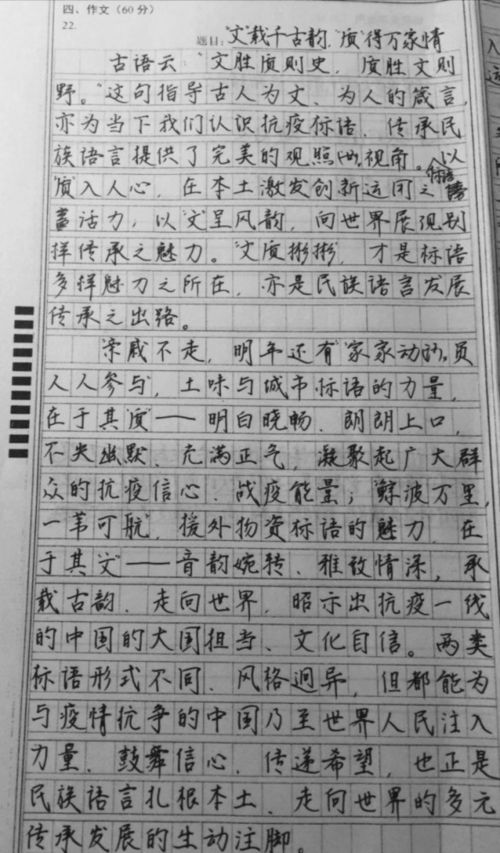 四、作文(60分)
22.
题目:“文”载千古韵,“质”得万家情
古语云:“文胜质则史,质胜文则
野。”这句指导古人为文、为人的箴言,
亦为当下我们认识抗疫标语、传承民
族语言提供了完美的观照视角。以
“质”入人心,在本土激发创新运用之标语
活力,以“文”呈风韵,向世界展现别
样传承之魅力。“文质彬彬”,才是标语
多样魅力之所在,亦是民族语言发展
传承之出路。
亲戚不走,明年还有“家家动员
人人参与”,土味与城市标语的力量,
在于其“质”——明白晓畅、朗朗上口,
不失幽默、充满正气,凝聚起广大群
众的抗疫信心、战疫能量;“鲸波万里,
一苇可航”,援外物资标语的魅力,在
于其“文”——音韵婉转、雅致情深,承
载古韵、走向世界,昭示出抗疫一线
的中国的大国担当、文化自信。两类
标语形式不同、风格迥异,但都能为
与疫情抗争的中国乃至世界人民注入
力量、鼓舞信心、传递希望,也正是
民族语言扎根本土、走向世界的多元
传承发展的生动注脚。